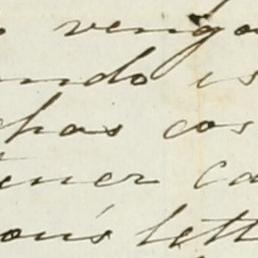 vengo
ndo is
chas cos
tener ca
ous lett